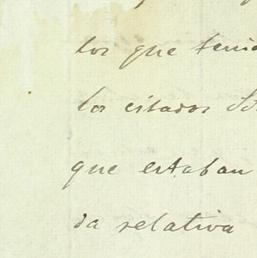 los que tenia
los estados So
que estaban
da relativa